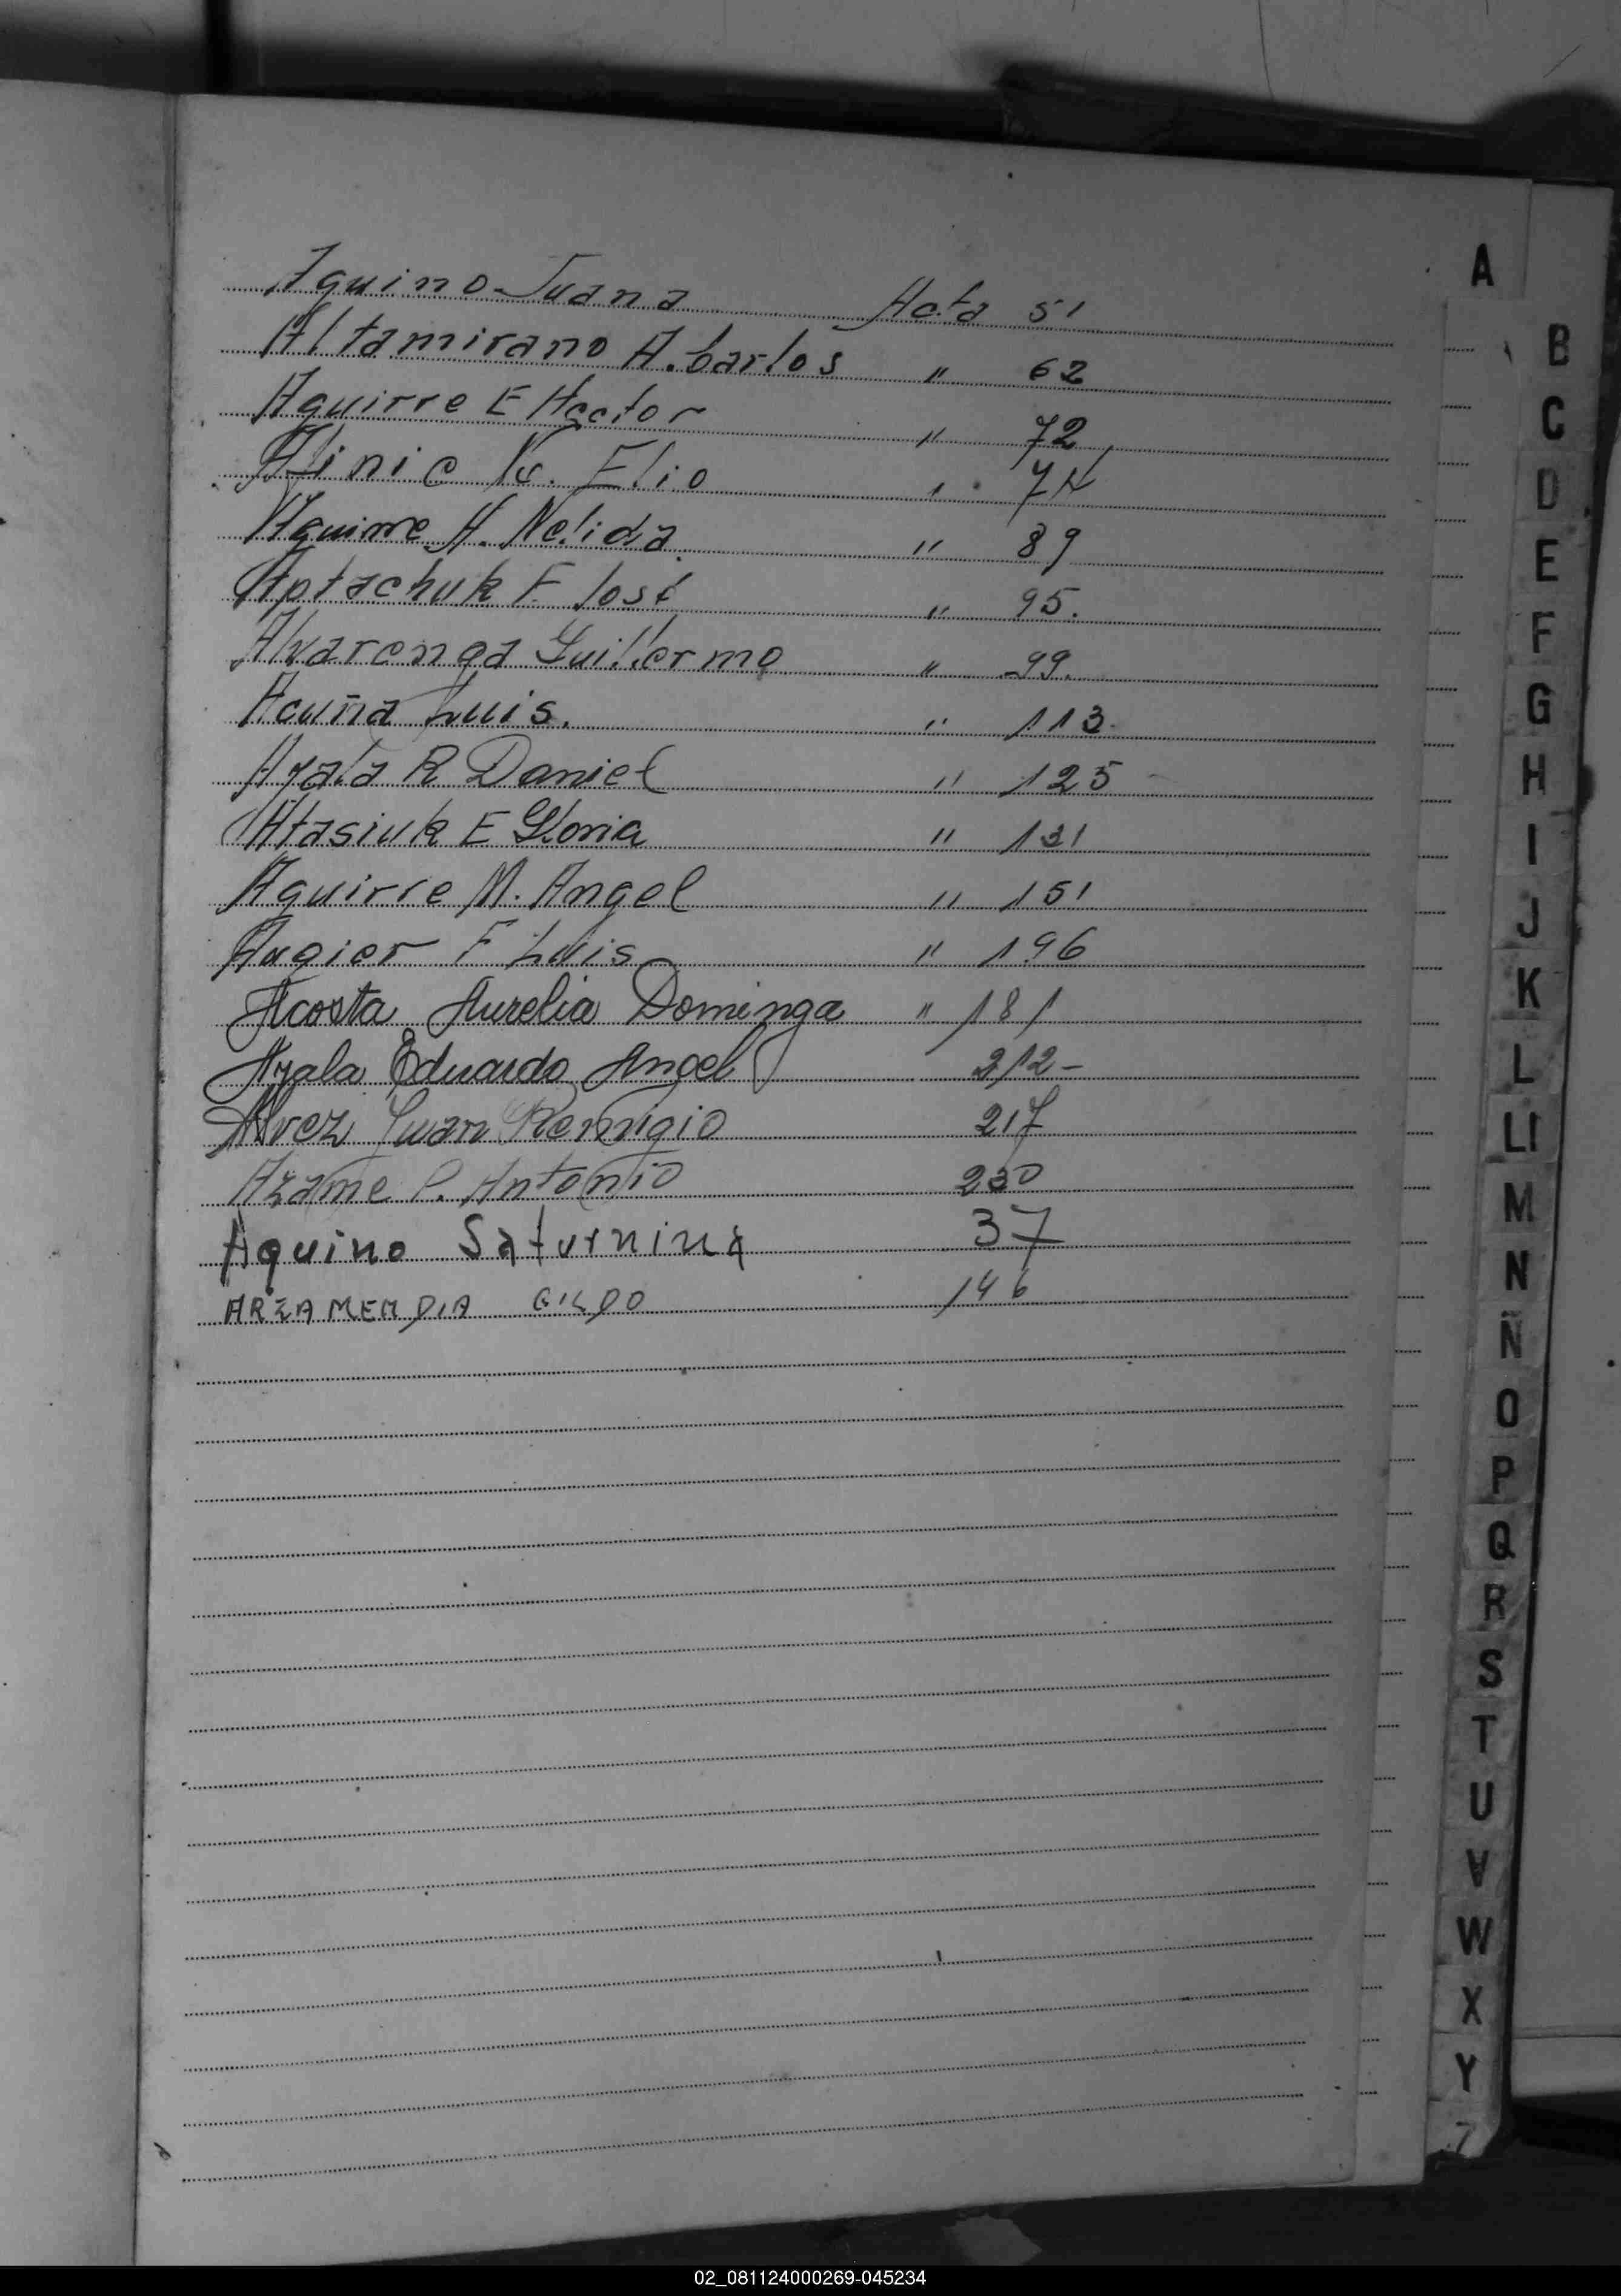 Aquino Juana Acta 51
Altamirano A. Carlos " 62
Aguirre E Hector " 72
Elio " 74
Aguirre H. Nelida " 89
Aptachuk F José " 95.
Alvarenga Guillermo " 99.
Acuña Luis. " 113
Ayala R Daniel " 125
Atasiuk E Gloria " 131
Aguirre M. Angel " 151
Augier F Luis " 196
Acosta Aurelia Dominga " 181
Ayala Eduardo Angel 212-
Alvez Juan Remigio 217
Azame P. Antonio 230
Aquino Saturnina 37
ARZAMENDIA GILDO 146
A
B
C
D
E
F
G
H
I
J
K
L
Ll
M
N
Ñ
O
P
Q
R
S
T
U
V
W
X
Y
Z
02_081124000269-045234